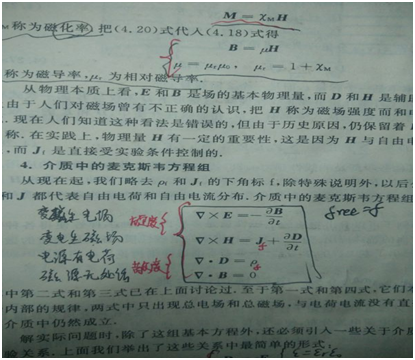 M = χ_M H
M 称为磁化率) 把(4.20)式代入(4.18)式得
B = μH
μ = μ_r μ_0,  μ_r = 1 + χ_M
称为磁导率, μ_r 为相对磁导率.
从物理本质上看, E 和 B 是场的基本物理量, 而 D 和 H 是辅助
由于人们对磁场曾有不正确的认识, 把 H 称为磁场强度而和电
. 现在人们知道这种看法是错误的, 但由于历史原因, 仍保留着
称. 在实践上, 物理量 H 有一定的重要性, 这是因为 H 与自由电
, 而 J_f 是直接受实验条件控制的.
4. 介质中的麦克斯韦方程组
从现在起, 我们略去 ρ_f 和 J_f 的下角标 f, 除特殊说明外, 以后
和 J 都代表自由电荷和自由电流分布. 介质中的麦克斯韦方程组
变磁生电涡 旋度 ∇ × E = −∂B/∂t free=f
变电生磁场 ∇ × H = J_f + ∂D/∂t
电源有电荷 散度 ∇ · D = ρ_f
磁源无处循 ∇ · B = 0
中第二式和第三式已在上面讨论过. 至于第一式和第四式, 它们
内部的规律, 两式中只出现总电场和总磁场, 与电荷电流没有直
介质中仍然成立.
解实际问题时, 除了这组基本方程外, 还必须引入一些关于介质
验关系. 上面我们举出了这些关系中最简单的形式: